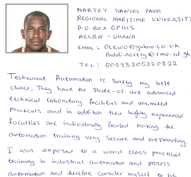 NARTEY DANIEL PADI
REGIONAL MARITIME UNIVERSITY
P.O BOX GP1115
ACCRA - GHANA
Technocrat Automation is surely my best
choice. They have the state-of-are advanced
technical laboratory facilities and unlimited
practicals and in addition their highly experienced
faculties are individually focused making the
automation training very secure and outstanding.
I was exposed to a world class practical
training in industrial automation and process
automation and therefore consider myself to be